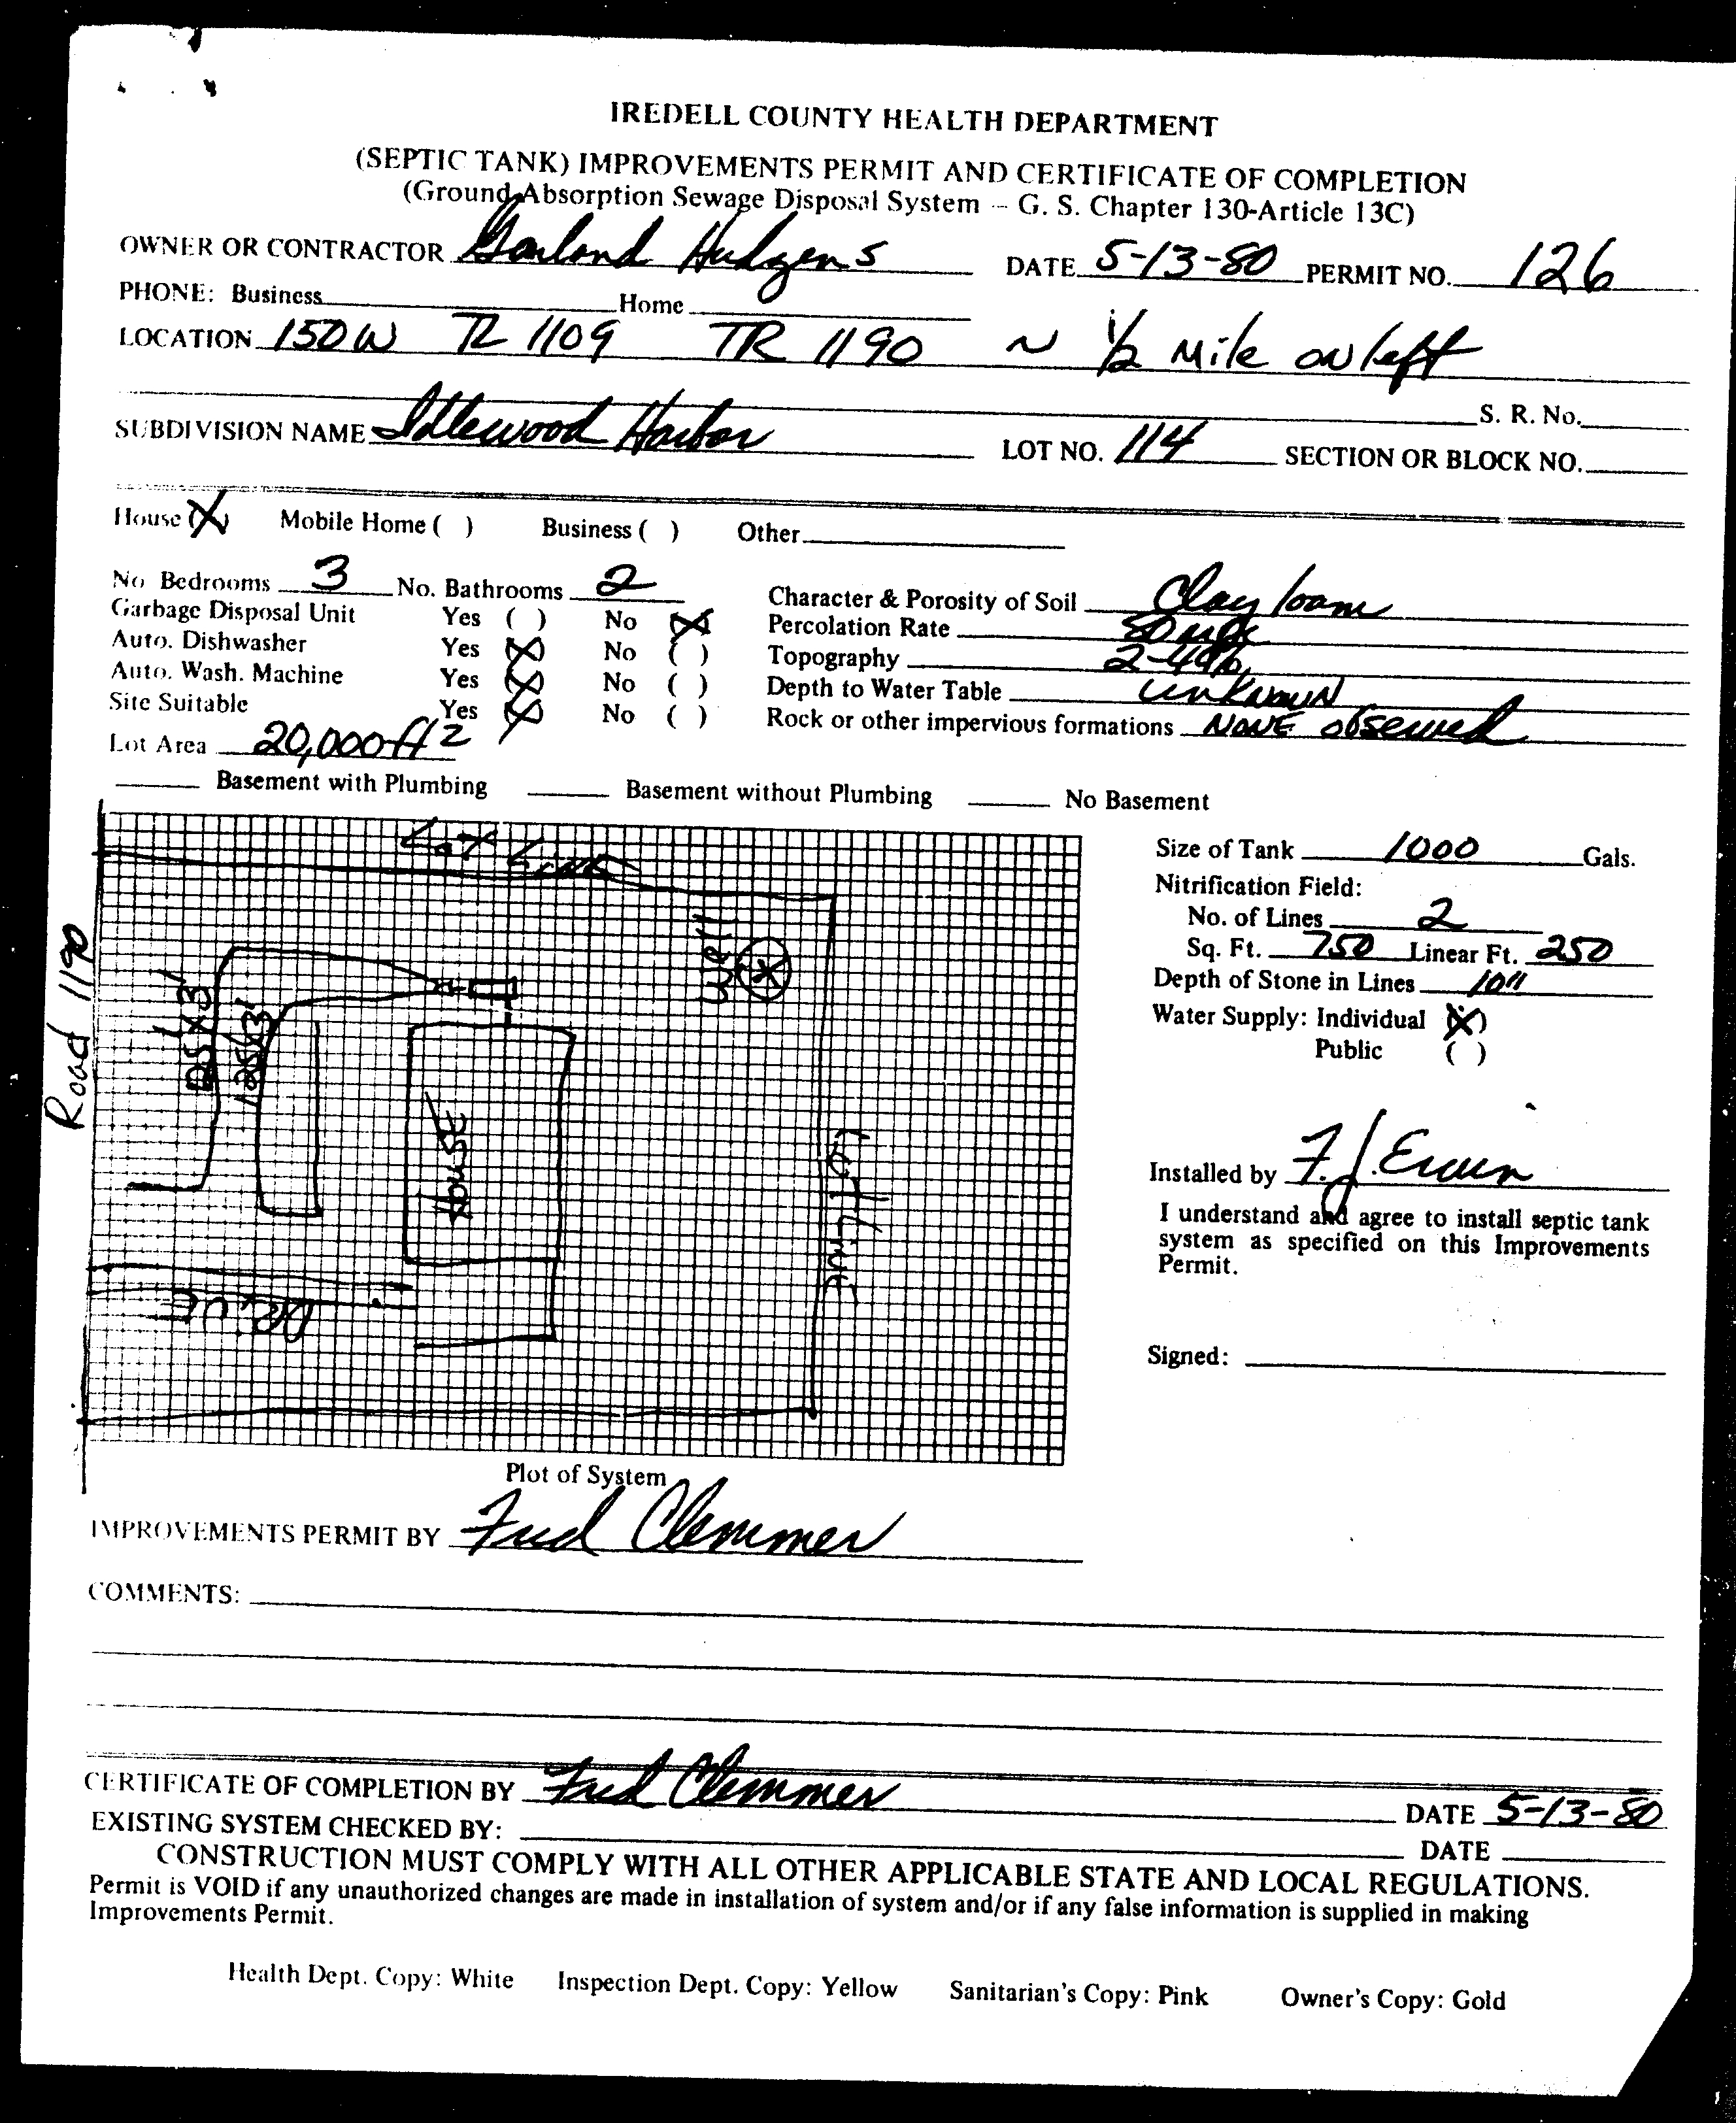 IREDELL COUNTY HEALTH DEPARTMENT
(SEPTIC TANK) IMPROVEMENTS PERMIT AND CERTIFICATE OF COMPLETION
(Ground Absorption Sewage Disposal System – G. S. Chapter 130-Article 13C)
OWNER OR CONTRACTOR Garland Hudgens DATE 5-13-80 PERMIT NO. 126
PHONE: Business Home
LOCATION 150 W TL 1109 TR 1190 ~ 1/2 Mile on left
S. R. No.
SUBDIVISION NAME Idlewood Harbor LOT NO. 114 SECTION OR BLOCK NO.
House (X) Mobile Home ( ) Business ( ) Other
No Bedrooms 3 No. Bathrooms 2
Garbage Disposal Unit Yes ( ) No (X)
Auto. Dishwasher Yes (X) No ( )
Auto. Wash. Machine Yes (X) No ( )
Site Suitable Yes (X) No ( )
Lot Area 20,000 ft2
Character & Porosity of Soil Clay loam
Percolation Rate
Topography 2-4%
Depth to Water Table unknown
Rock or other impervious formations NONE observed
Basement with Plumbing Basement without Plumbing No Basement
Lot Line
Road 1190
125x3'
125x3'
Well
House
Lot Line
Drive
Plot of System
Size of Tank 1000 Gals.
Nitrification Field:
No. of Lines 2
Sq. Ft. 750 Linear Ft. 250
Depth of Stone in Lines 10"
Water Supply: Individual (X)
Public ( )
Installed by F.J. Erwin
I understand and agree to install septic tank
system as specified on this Improvements
Permit.
Signed:
IMPROVEMENTS PERMIT BY Fred Clemmer
COMMENTS:
CERTIFICATE OF COMPLETION BY Fred Clemmer DATE 5-13-80
EXISTING SYSTEM CHECKED BY: DATE
CONSTRUCTION MUST COMPLY WITH ALL OTHER APPLICABLE STATE AND LOCAL REGULATIONS.
Permit is VOID if any unauthorized changes are made in installation of system and/or if any false information is supplied in making
Improvements Permit.
Health Dept. Copy: White Inspection Dept. Copy: Yellow Sanitarian's Copy: Pink Owner's Copy: Gold